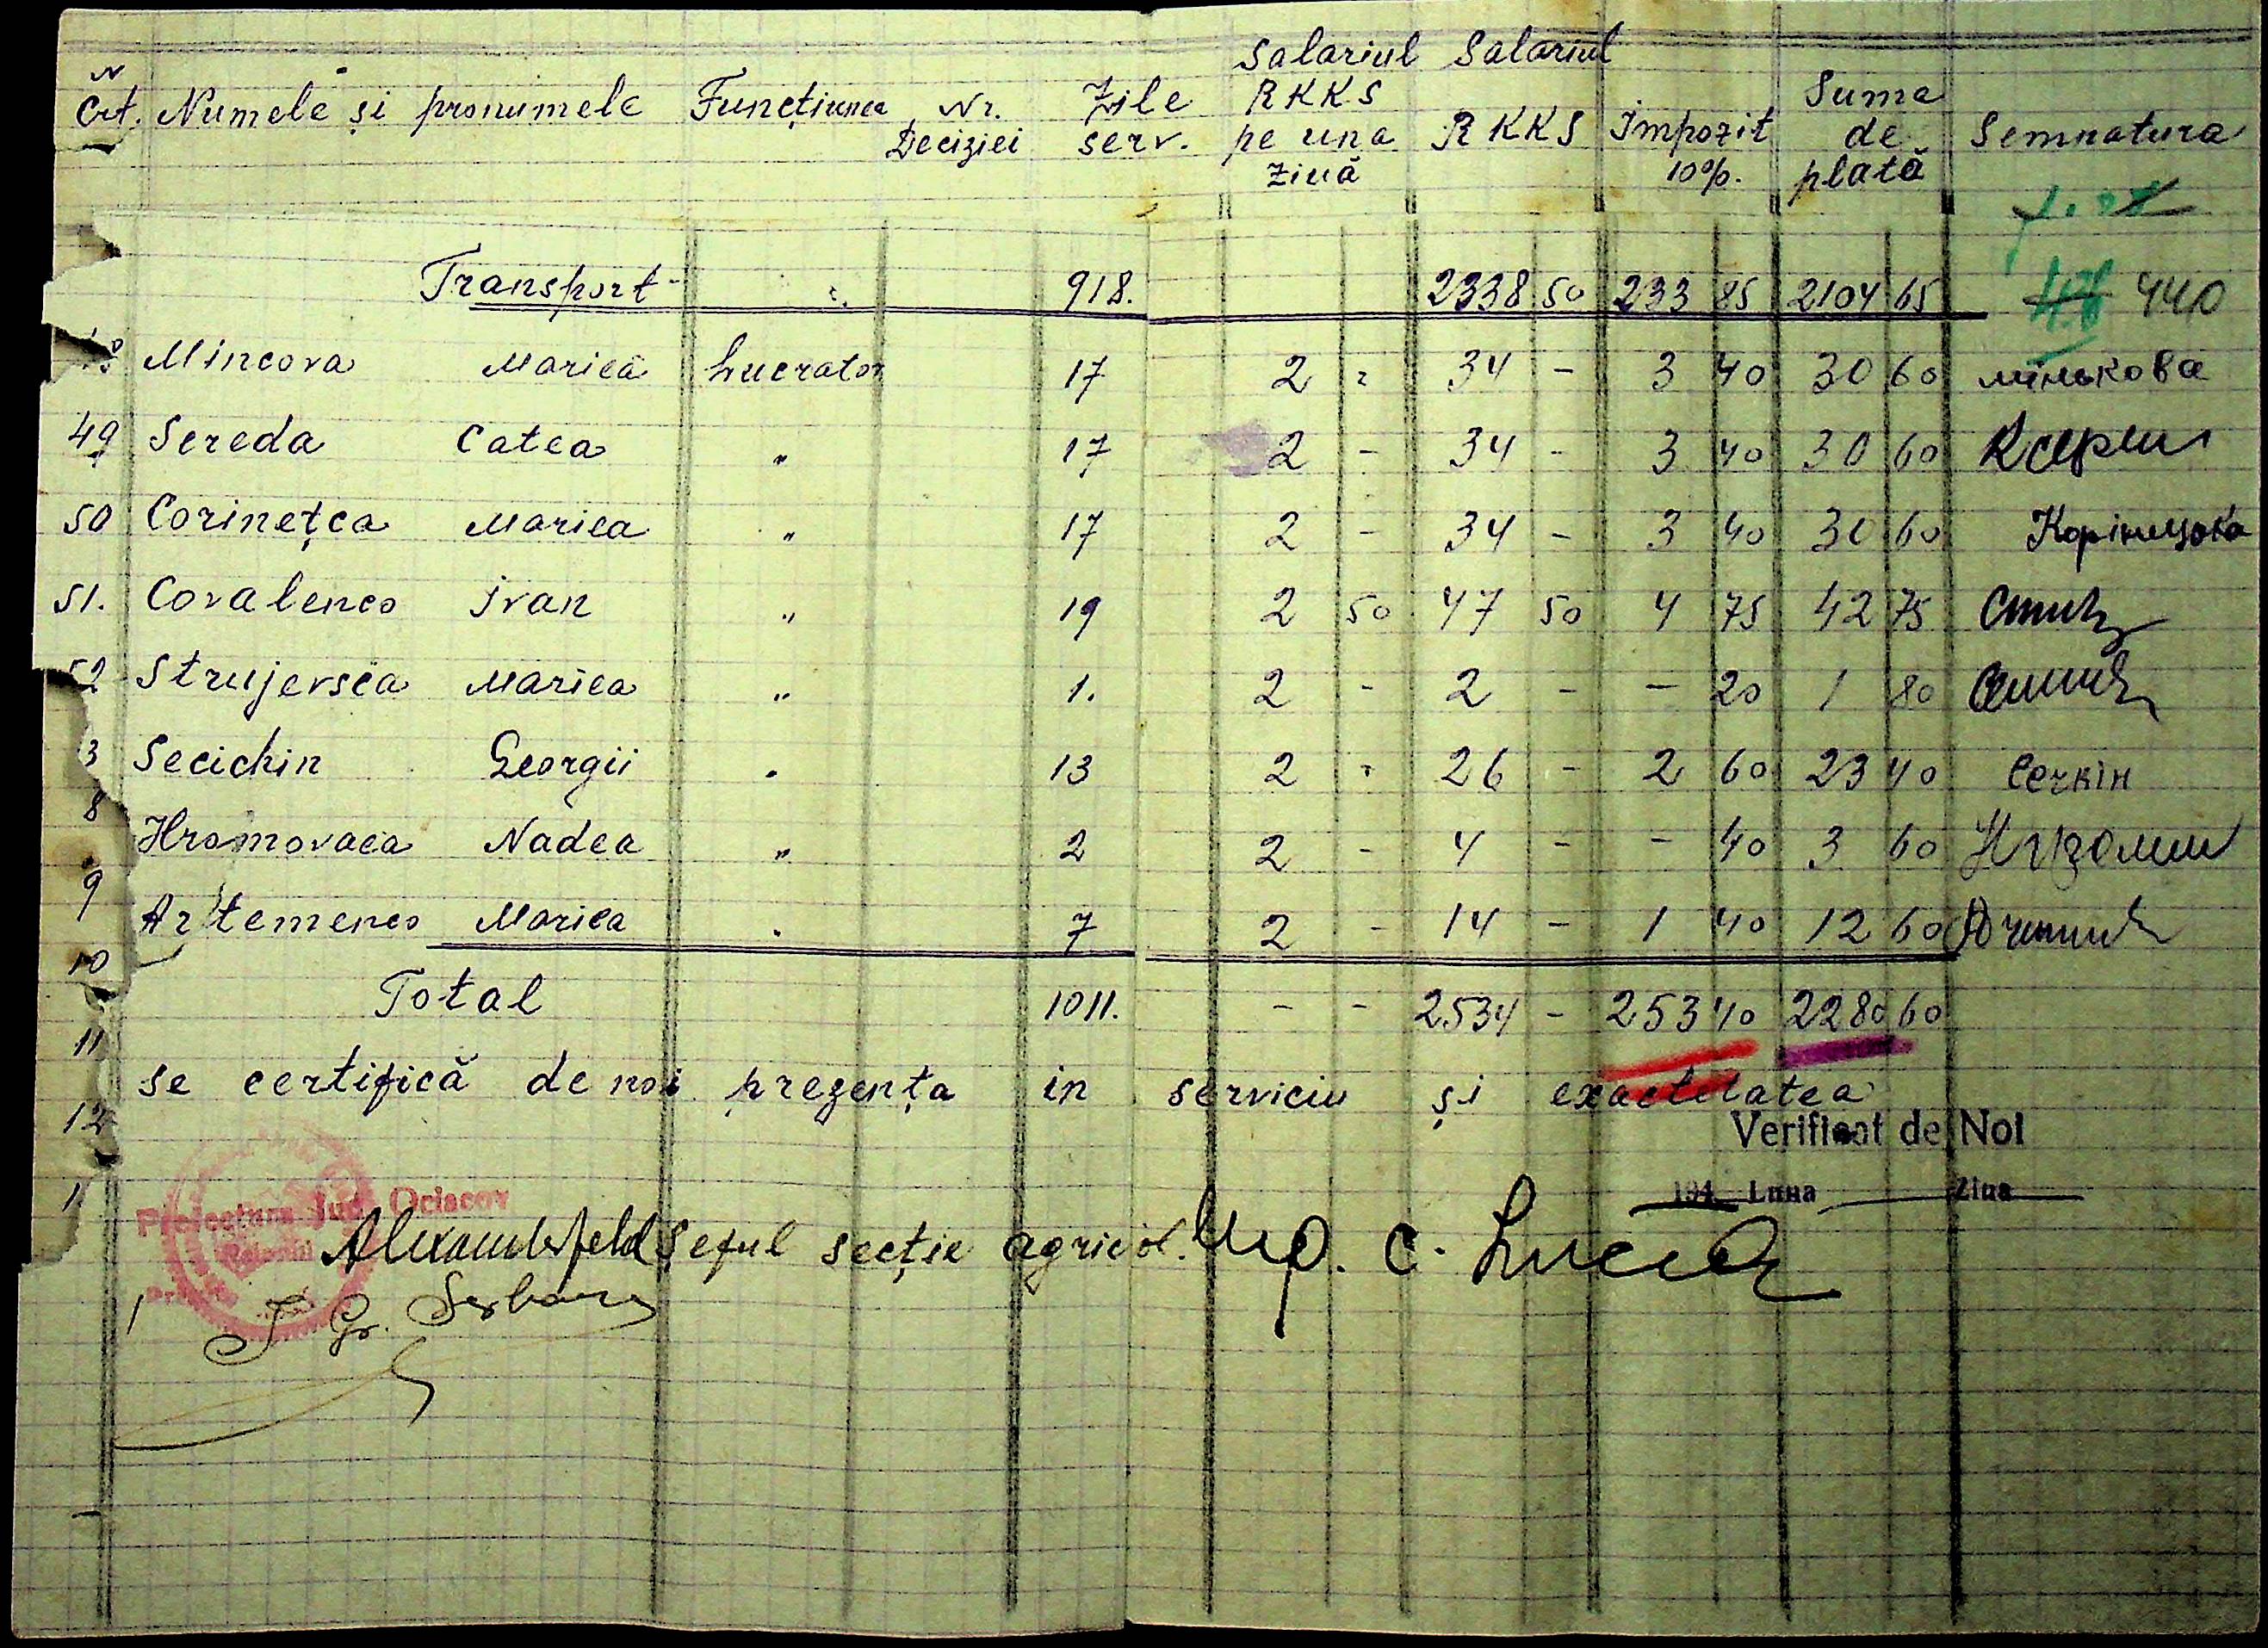 N Crt. Numele și pronumele Funcțiunea Nr. Deciziei Zile serv. Salariul RKKS pe una ziuă Salariul RKKS Impozit 10%. Suma de plată Semnatura
Transport 918. 2338 50 233 85 2104 65 440
Mincova Mariea Lucrator 17 2 - 34 - 3 40 30 60 мінькова
49 Sereda Catea " 17 2 - 34 - 3 40 30 60
50 Corinețca Mariea " 17 2 - 34 - 3 40 30 60 Корінецька
51. Covalenco Ivan " 19 2 50 47 50 4 75 42 75
52 Strujevsca Mariea " 1. 2 - 2 - - 20 1 80
3 Secichin Georgii " 13 2 - 26 - 2 60 23 40 Сечкін
8
Hromovaea Nadea " 2 2 - 4 - - 40 3 60
9
Artemenco Mariea " 7 2 - 14 - 1 40 12 60
10
Total 1011. - - 2534 - 253 40 2280 60
11
se certifică de noi prezența in serviciu și exactetatea
12
Verificat de Noi
194 Luna Ziua
1
Prefectura Jud. Ociacov
Alexanderfeld Șeful secție agricol.
Gr. Serban